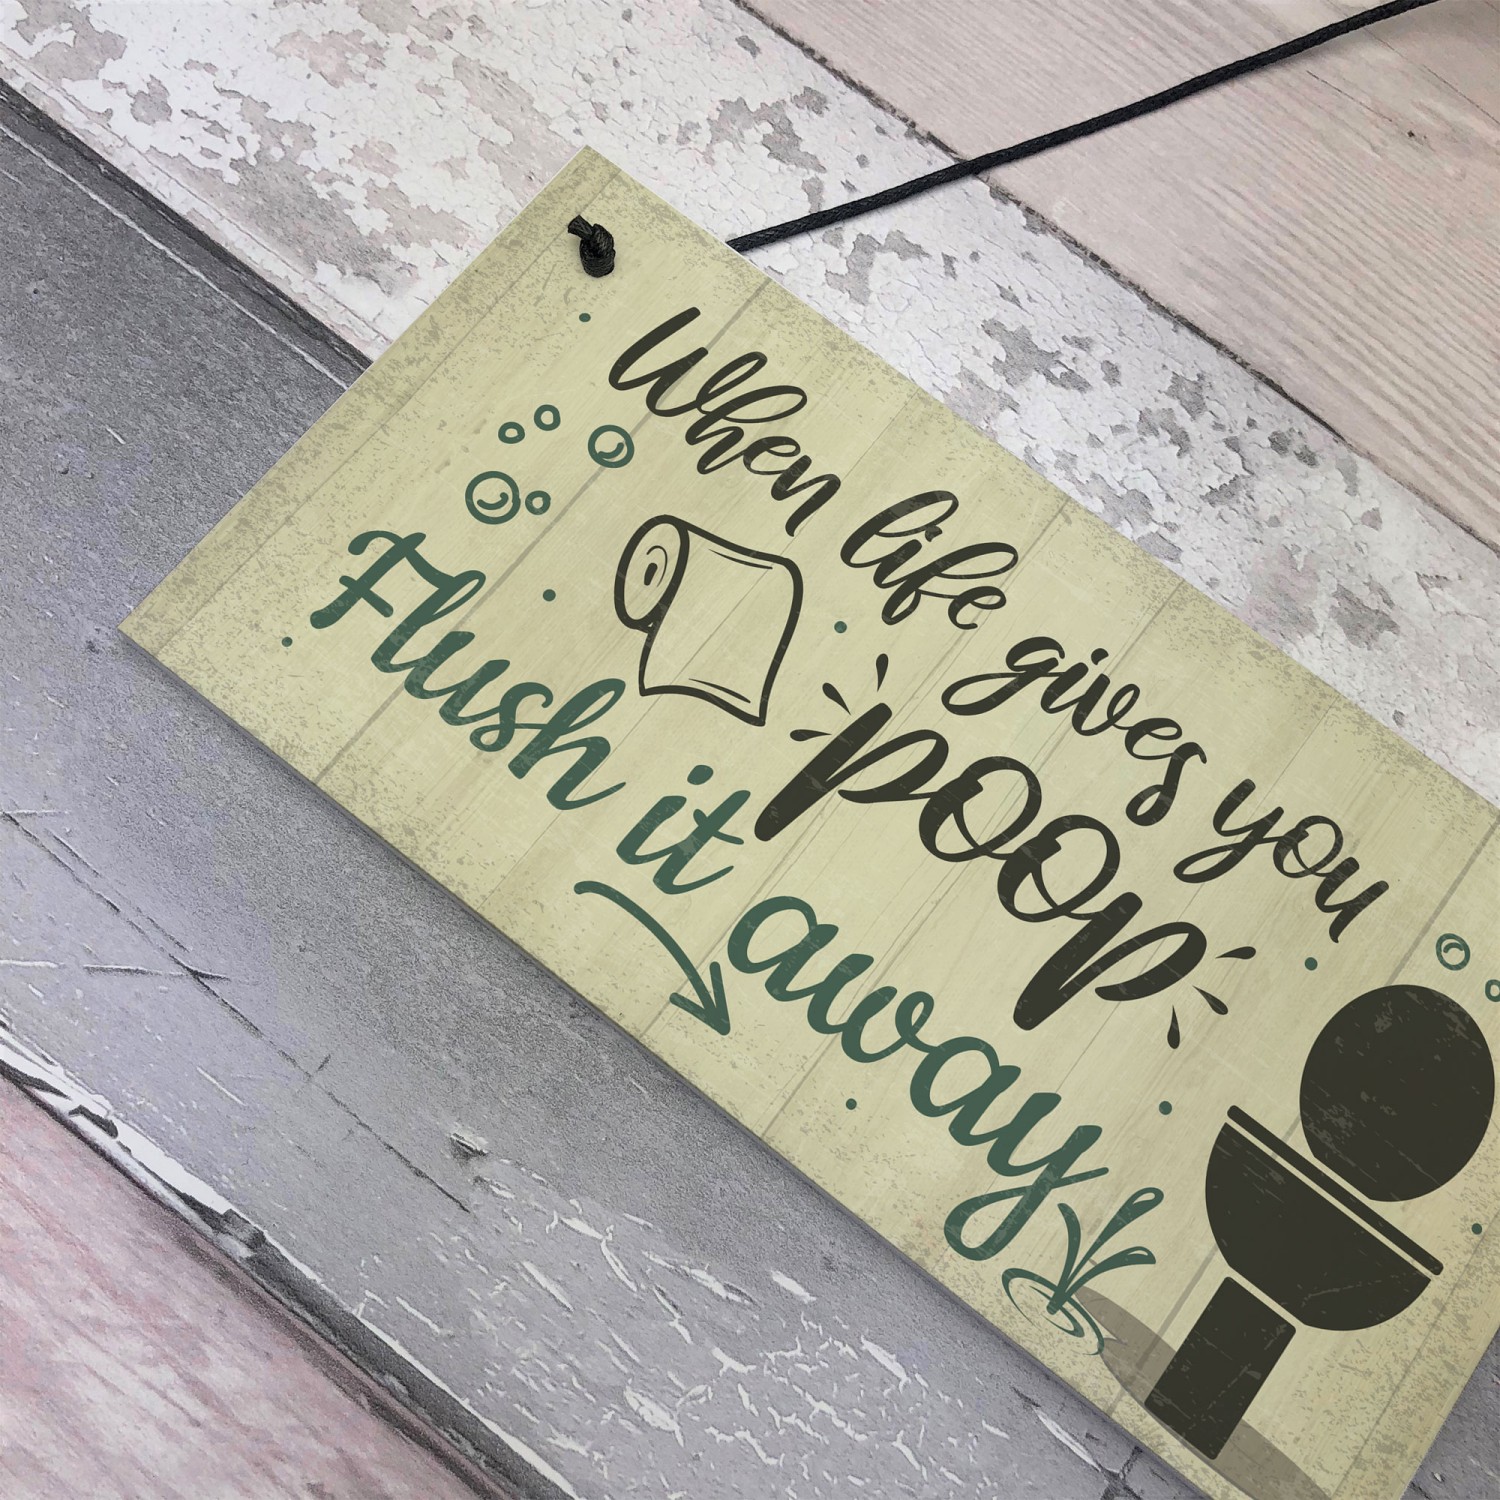 When life gives you
POOP
Flush it away